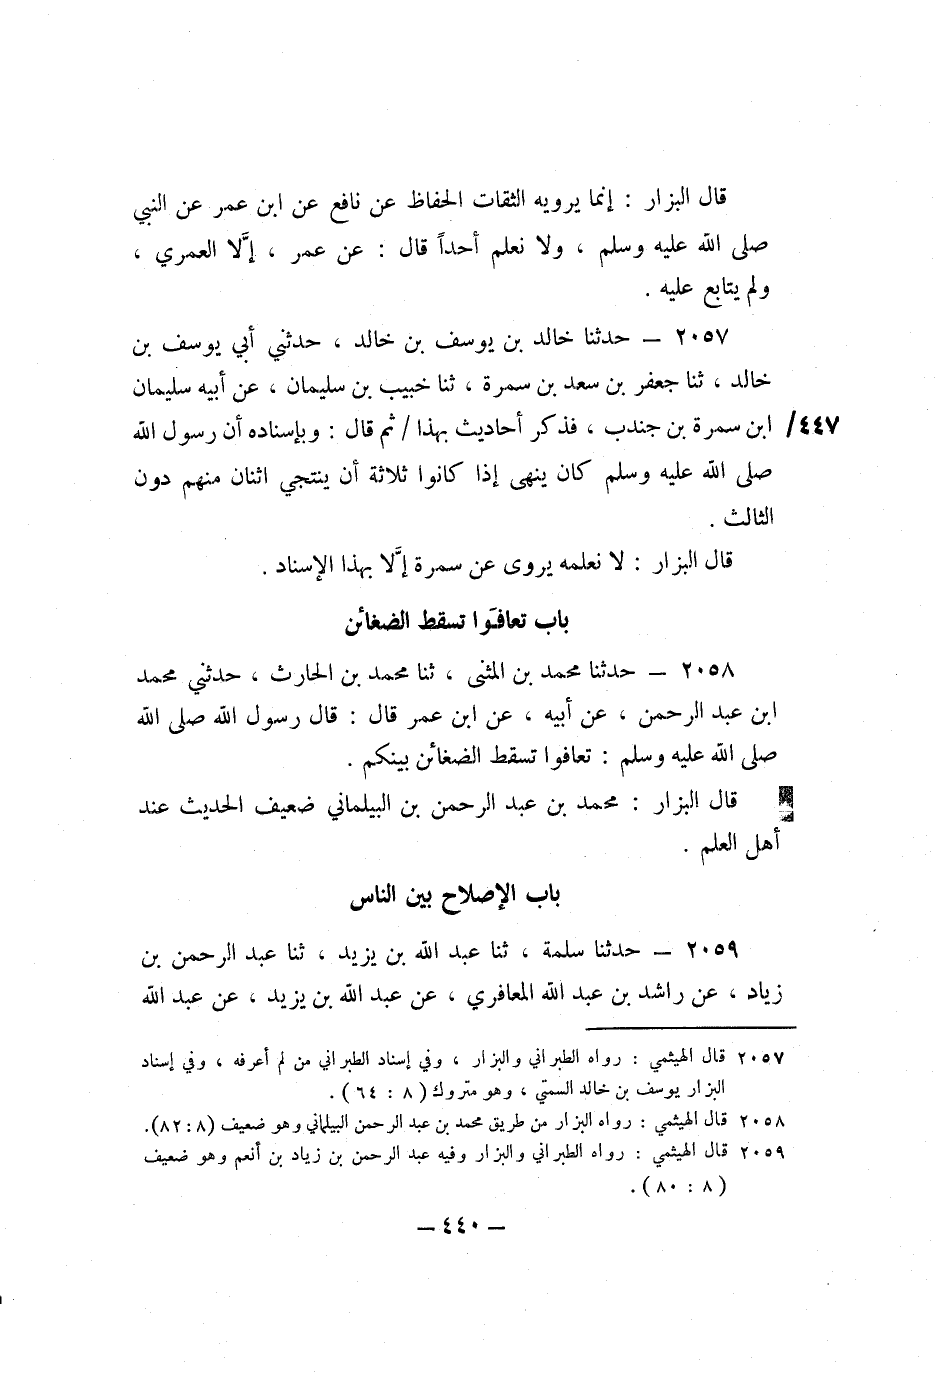 قال البزار : إنما يرويه الثقات الحفاظ عن نافع عن ابن عمر عن النبي
صلى الله عليه وسلم ، ولا نعلم أحداً قال : عن عمر ، إلَّا العمري ،
ولم يتابع عليه .
٢٠٥٧ – حدثنا خالد بن يوسف بن خالد ، حدثني أبي يوسف بن
خالد ، ثنا جعفر بن سعد بن سمرة ، ثنا خبيب بن سليمان ، عن أبيه سليمان
٤٤٧/ ابن سمرة بن جندب ، فذكر أحاديث بهذا / ثم قال : وبإسناده أن رسول الله
صلى الله عليه وسلم كان ينهى إذا كانوا ثلاثة أن ينتجي اثنان منهم دون
الثالث .
قال البزار : لا نعلمه يروى عن سمرة إلَّا بهذا الإسناد .
باب تعافَوا تسقط الضغائن
٢٠٥٨ – حدثنا محمد بن المثنى ، ثنا محمد بن الحارث ، حدثني محمد
ابن عبد الرحمن ، عن أبيه ، عن ابن عمر قال : قال رسول الله صلى الله
صلى الله عليه وسلم : تعافوا تسقط الضغائن بينكم .
قال البزار : محمد بن عبد الرحمن بن البيلماني ضعيف الحديث عند
أهل العلم .
باب الإصلاح بين الناس
٢٠٥٩ – حدثنا سلمة ، ثنا عبد الله بن يزيد ، ثنا عبد الرحمن بن
زياد ، عن راشد بن عبد الله المعافري ، عن عبد الله بن يزيد ، عن عبد الله
٢٠٥٧ قال الهيثمي : رواه الطبراني والبزار ، وفي إسناد الطبراني من لم أعرفه ، وفي إسناد
البزار يوسف بن خالد السمتي ، وهو متروك ( ٨ : ٦٤ ) .
٢٠٥٨ قال الهيثمي : رواه البزار من طريق محمد بن عبد الرحمن البيلماني وهو ضعيف (٨ : ٨٢).
٢٠٥٩ قال الهيثمي : رواه الطبراني والبزار وفيه عبد الرحمن بن زياد بن أنعم وهو ضعيف
( ٨ : ٨٠ ) .
– ٤٤٠ –